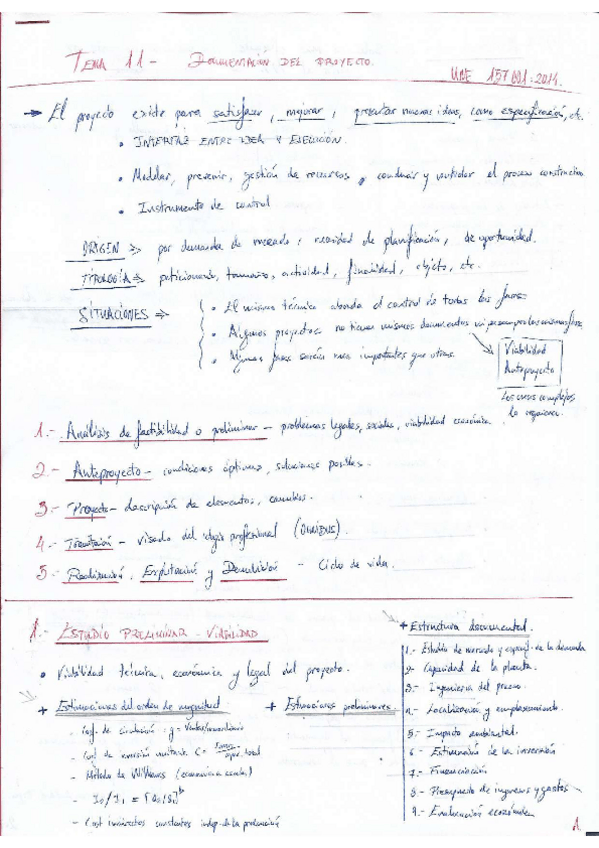 TEMA 11 - DOCUMENTACIÓN DEL PROYECTO.
UNE 157001-2014.
→ El proyecto existe para satisfacer, mejorar, presentar nuevas ideas, como especificación, etc.
• INTERFAZ ENTRE IDEA Y EJECUCIÓN.
• Modelar, prevenir, gestión de recursos, conducir y controlar el proceso constructivo
• Instrumento de control
ORIGEN => por demanda de mercado, necesidad de planificación, de oportunidad.
TIPOLOGÍA => peticionario, tamaño, actividad, finalidad, objeto, etc.
SITUACIONES =>
• El mismo técnico aborda el control de todas las fases
• Algunos proyectos no tienen mismos documentos ni pasan por las mismas fases
• Algunas fases serán más importantes que otras.
Viabilidad
Anteproyecto
Los casos complejos
lo requieren.
1.- Análisis de factibilidad o preliminar - problemas legales, sociales, viabilidad económica
2.- Anteproyecto - condiciones óptimas, soluciones posibles.
3.- Proyecto - descripción de elementos,
4.- Tramitación - visado del colegio profesional
5.- Realización, Explotación y Demolición - Ciclo de vida.
1.- ESTUDIO PRELIMINAR - VIABILIDAD
• Viabilidad técnica, económica y legal del proyecto.
+ Estimaciones del orden de magnitud
- Coef. de circulación: g = Ventas/
- Coef de inversión unitaria C = total
- Método de Williams (economía escala)
- I0/I1 = [Q0/Q1]^b
- Cost indirectos constantes indep. de la producción
+ Estimaciones preliminares
+ Estructura documental.
1.- Estudio de mercado y de la demanda
2- Capacidad de la planta.
3.- Ingeniería del proceso.
4.- Localización y emplazamiento.
5.- Impacto ambiental.
6- Estimación de la inversión
7.- Financiación
8.- Presupuesto de ingresos y gastos
9.- Evaluación económica
1